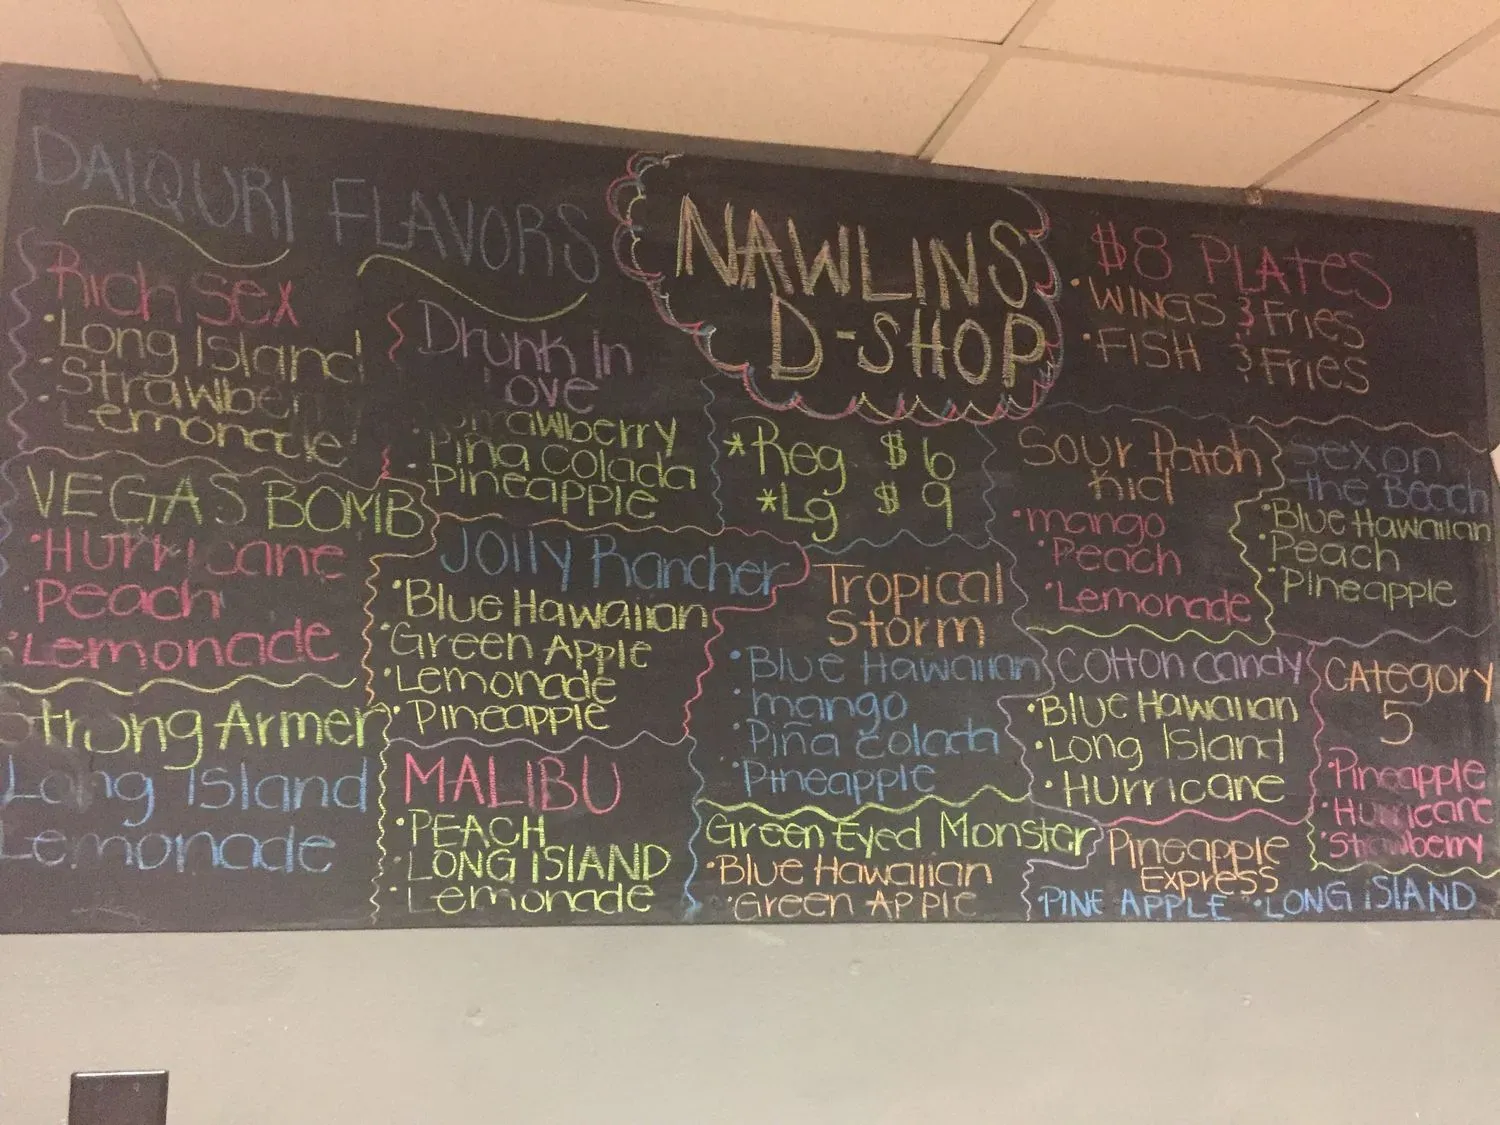 DAIQURI FLAVORS
Rich Sex
•Long Island
•Strawber
•Lemonade
Drunk In
Love
•Strawberry
•Piña Colada
•Pineapple
VEGAS BOMB
•Hurricane
•Peach
•Lemonade
Strong Armer
Long Island
Lemonade
Jolly Rancher
•Blue Hawaiian
•Green Apple
•Lemonade
•Pineapple
MALIBU
•PEACH
•LONG ISLAND
•Lemonade
NAWLINS
D-SHOP
*Reg $6
*Lg $9
Tropical
Storm
•Blue Hawaiian
•mango
•Piña Colada
•Pineapple
Green Eyed Monster
•Blue Hawaiian
•Green Apple
$8 PLATES
•WINGS & Fries
•FISH & Fries
Sour Patch
Kid
•mango
•Peach
•Lemonade
Sex on
the Beach
•Blue Hawaiian
•Peach
•Pineapple
Cotton Candy
•Blue Hawaiian
•Long Island
•Hurricane
CATEGORY
5
•Pineapple
•Hurricane
•Strawberry
Pineapple
Express
•PINE APPLE •LONG ISLAND